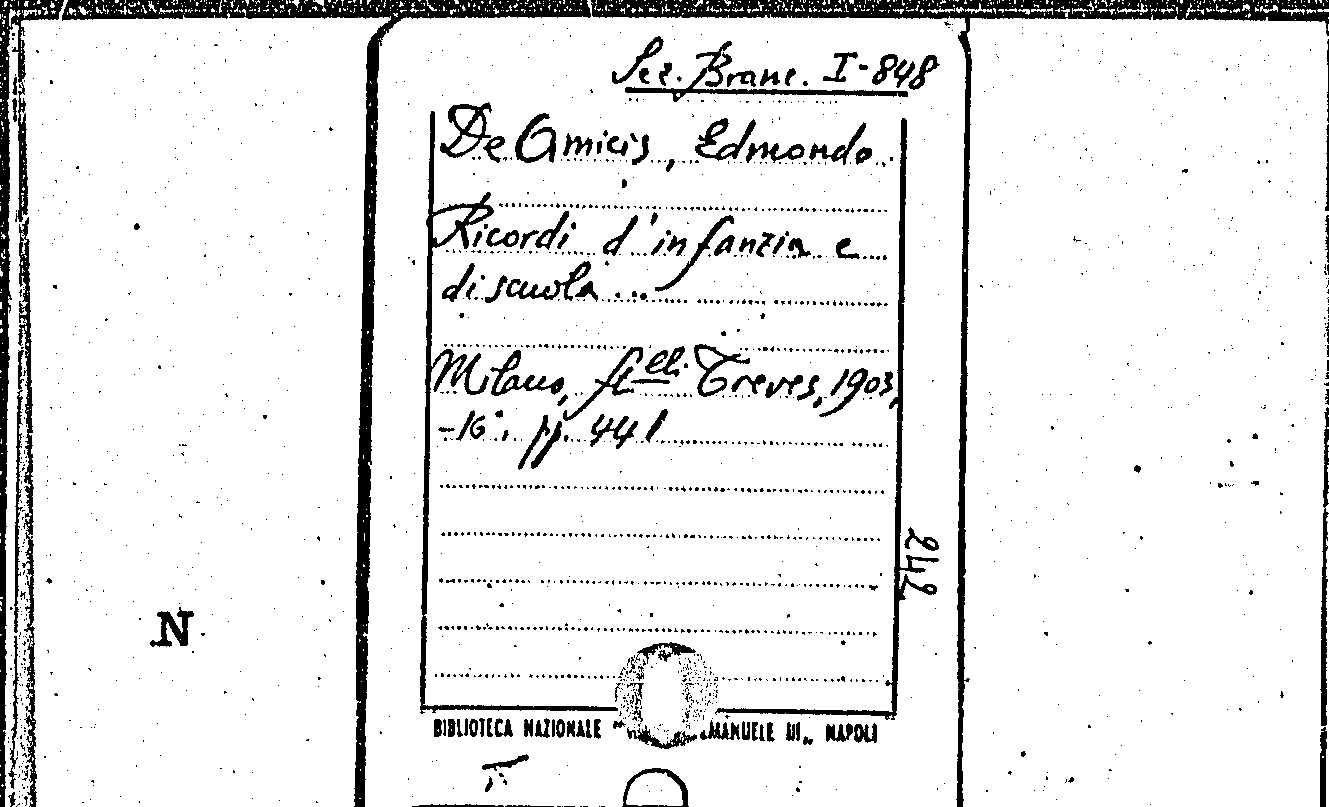 Sez. Branc. I-848
De Amicis, Edmondo
Ricordi d'infanzia e
di scuola...
Milano, f.lli Treves, 1903,
-16°, pp. 441
242
N
BIBLIOTECA NAZIONALE " MANUELE III„ NAPOLI